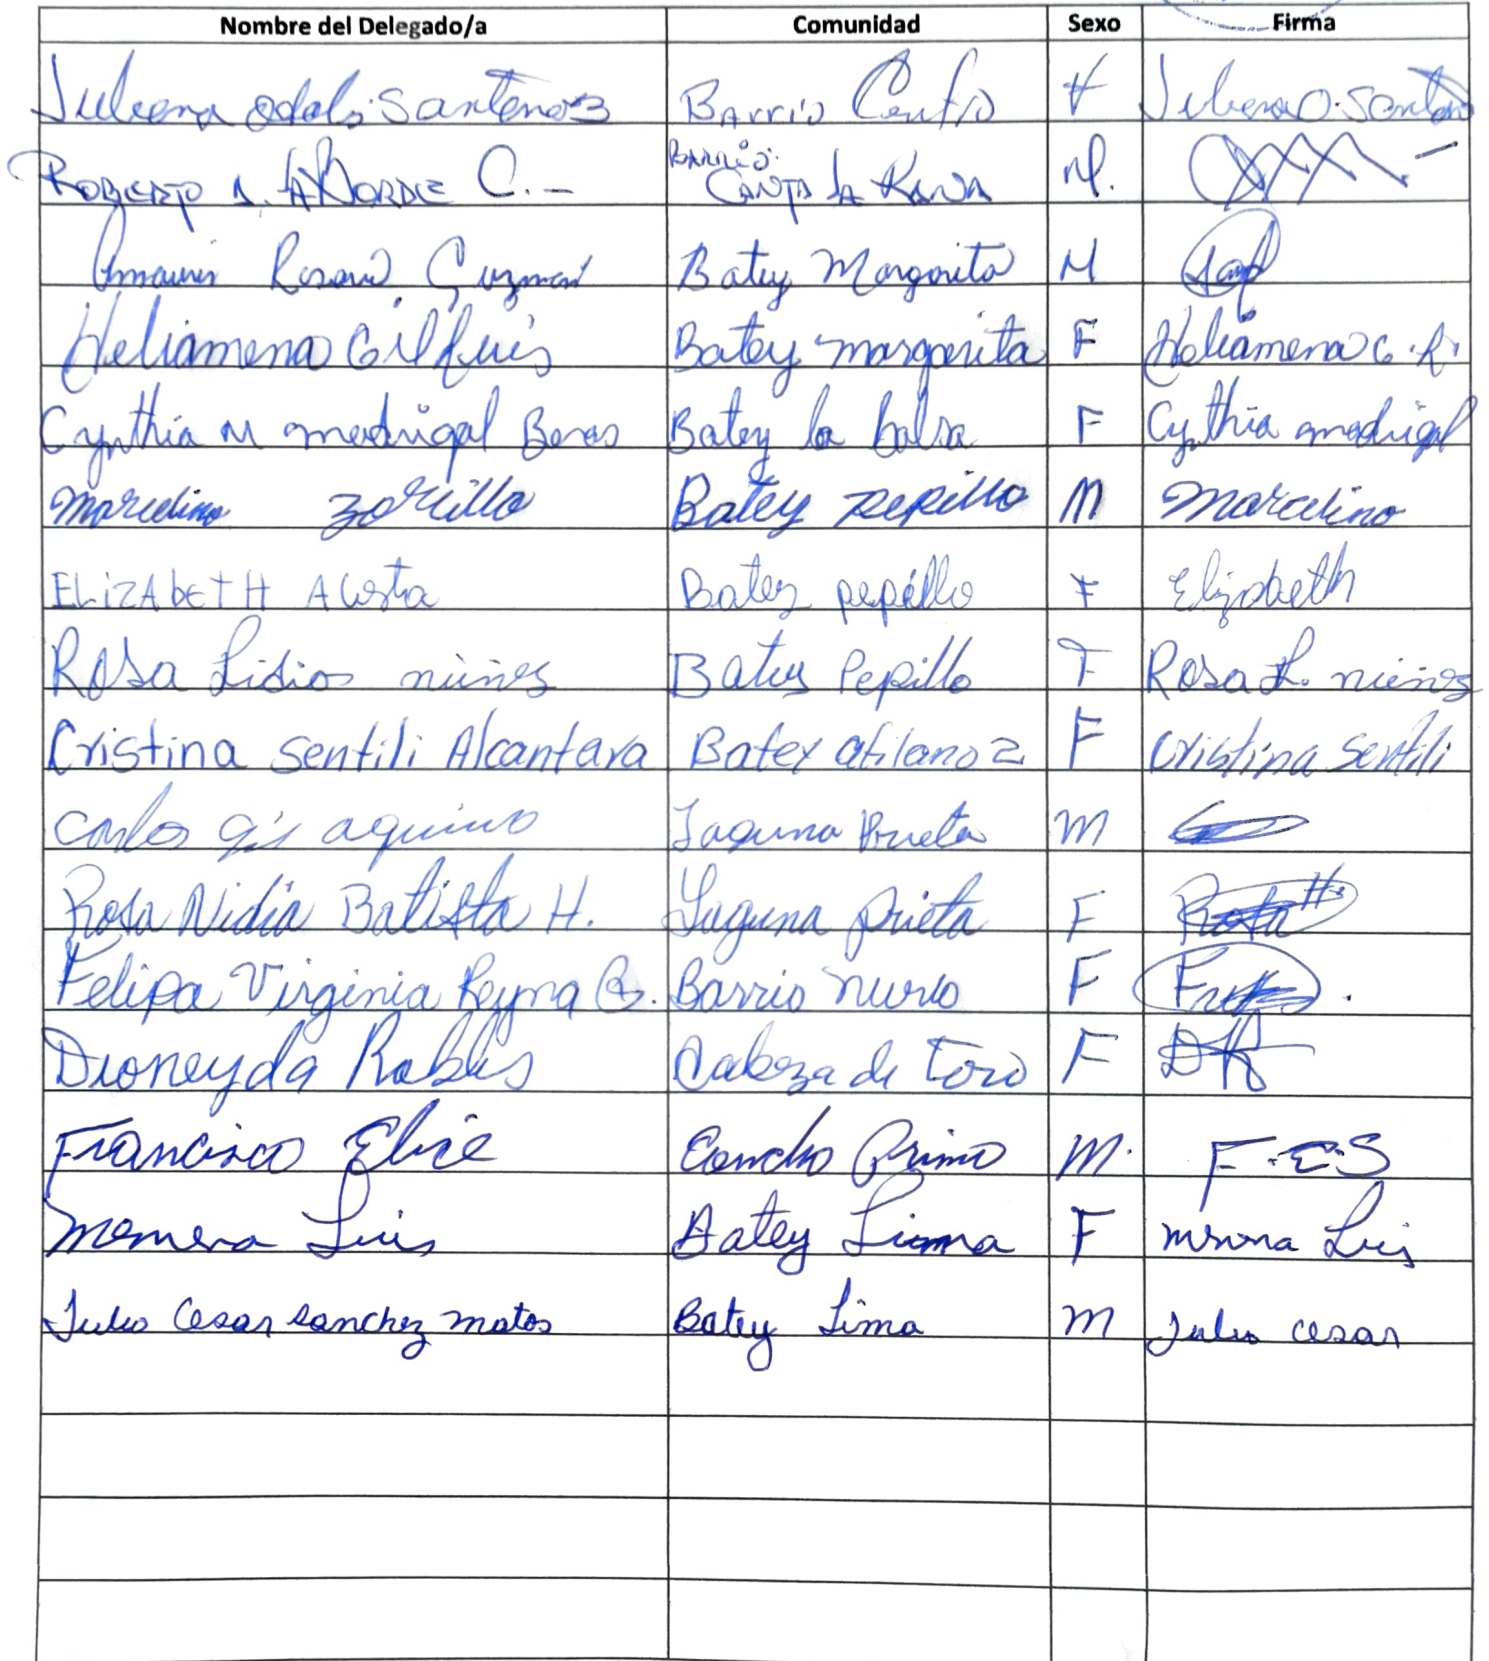 Nombre del Delegado/a Comunidad Sexo Firma
Juliana Odalis Santana Barrio Centro F Juliana O. Santana
Barrio
Roberto A. LaHorde C.- Canta La Rana M.
Amauris Rosario Guzman Batey Margarita M
Heliamena Gil Luis Batey margarita F Heliamena G. R.
Cynthia M madrigal Beras Batey la balsa F Cythia madrigal
Marcelino zorrilla Batey pepillo M Marcelino
ELizAbETH Acosta Batey pepillo F Elizabeth
Rosa Lidios núñes Batey Pepillo F Rosa L. núñes
Cristina Sentili Alcantara Batey atilano 2 F Cristina Sentili
Carlos aquino Laguna Prieta m
Rosa Nidia Batista H. Laguna prieta F Rosa H.
Felipa Virginia Reyna B. Barrio nuevo F
Dioneyda Robles Cabeza de Toro F DR
Francisco Elice Concho Primo M. F.E.S
Momena Luis Batey Lima F Luis
Julio Cesar Sanchez matos Batey Lima m Julio Cesar